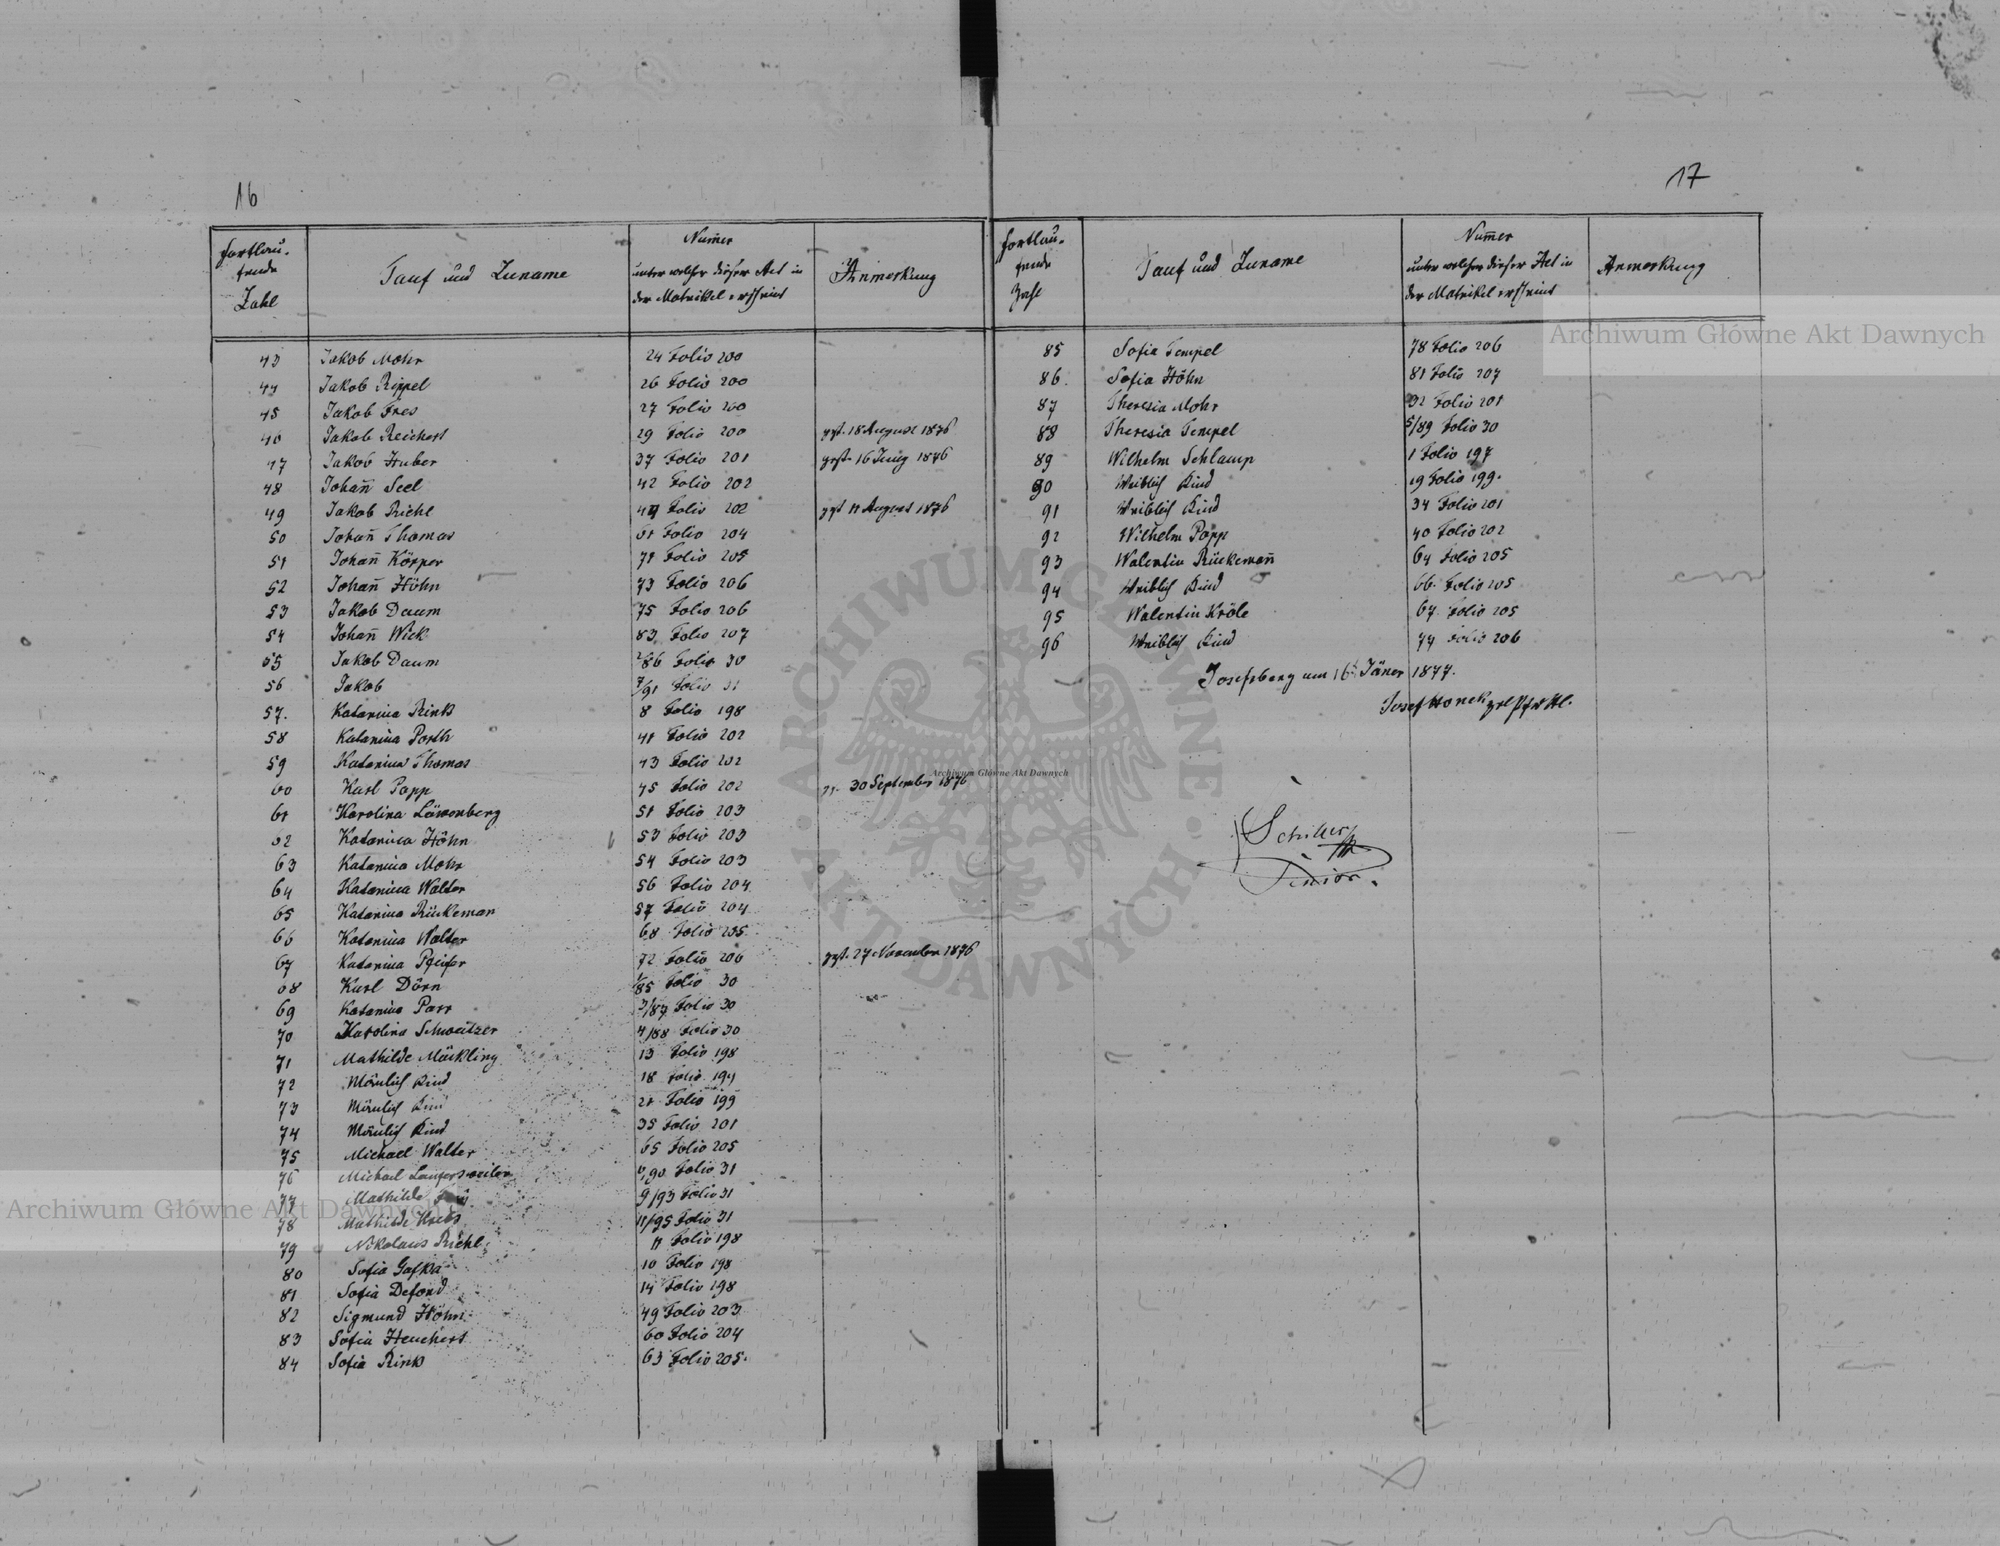 16
Fortlau-
fende
Zahl
Tauf und Zuname
Num̅er
unter welcher dieser Act in
der Matrikel erscheint
Anmerkung
43 Jakob Mohr 24 Folio 200
44 Jakob Rippel 26 Folio 200
45 Jakob Fres 27 Folio 200
46 Jakob Reichert 29 Folio 200 gst. 18 August 1876
47 Jakob Huber 37 Folio 201 gst. 16 Juny 1876
48 Johan̅ Seel 42 Folio 202
49 Jakob Riehl 44 Folio 202 gst 11 August 1876
50 Johan̅ Thomas 61 Folio 204
51 Johan̅ Körper 71 Folio 205
52 Johan̅ Höhn 73 Folio 206
53 Jakob Daum 75 Folio 206
54 Johan̅ Wick 83 Folio 207
55 Jakob Daum 2/86 Folio 30
56 Jakob 7/91 Folio 31
57. Katarina Rink 8 Folio 198
58 Katarina Porth 41 Folio 202
59 Katarina Thomas 43 Folio 202
60 Karl Popp 45 Folio 202 30 September 1876
61 Karolina Löwenberg 51 Folio 203
62 Katarina Höhn 53 Folio 203
63 Katarina Mohr 54 Folio 203
64 Katarina Walter 56 Folio 204
65 Katarina Rückeman 57 Folio 204
66 Katarina Walter 68 Folio 205
67 Katarina Pfeifer 72 Folio 206 gst. 27 November 1876
68 Karl Dörn 1/85 Folio 30
69 Katarina Parr 3/87 Folio 30
70 Karolina Schweitzer 4/88 Folio 30
71 Mathilde Möckling 13 Folio 198
72 Mänlich Kind 18 Folio 199
73 Mänlich Kind 21 Folio 199
74 Mänlich Kind 35 Folio 201
75 Michael Walter 65 Folio 205
76 Michael Laufersweiler 6/90 Folio 31
77 Mathilde 9/93 Folio 31
78 Mathilde Krebs 11/95 Folio 31
79 Nikolaus Riehl 11 Folio 198
80 Sofia Gafka 10 Folio 198
81 Sofia Defond 14 Folio 198
82 Sigmund Höhn 49 Folio 203
83 Sofia Heuchert 60 Folio 204
84 Sofia Rink 63 Folio 205.
17
Fortlau-
fende
Zahl
Tauf und Zuname
Num̅er
unter welcher dieser Act in
der Matrikel erscheint
Anmerkung
85 Sofia Tempel 78 Folio 206
86. Sofia Höhn 81 Folio 207
87 Theresia Mohr 32 Folio 201
88 Theresia Tempel 5/89 Folio 30
89 Wilhelm Schlamp 1 Folio 197
90 Weiblich Kind 19 Folio 199.
91 Weiblich Kind 34 Folio 201
92 Wilhelm Popp 40 Folio 202
93 Walentin Rückeman̅ 64 Folio 205
94 Weiblich Kind 66. Folio 205
95 Walentin Kröle 67 Folio 205
96 Weiblich Kind 74 Folio 206
Josefsberg am 16 Jäner 1877.
Josef Honek
Schiller
Senior.
Archiwum Główne Akt Dawnych
Archiwum Główne Akt Dawnych
Archiwum Główne Akt Dawnych
ARCHIWUM GŁÓWNE • AKT DAWNYCH •